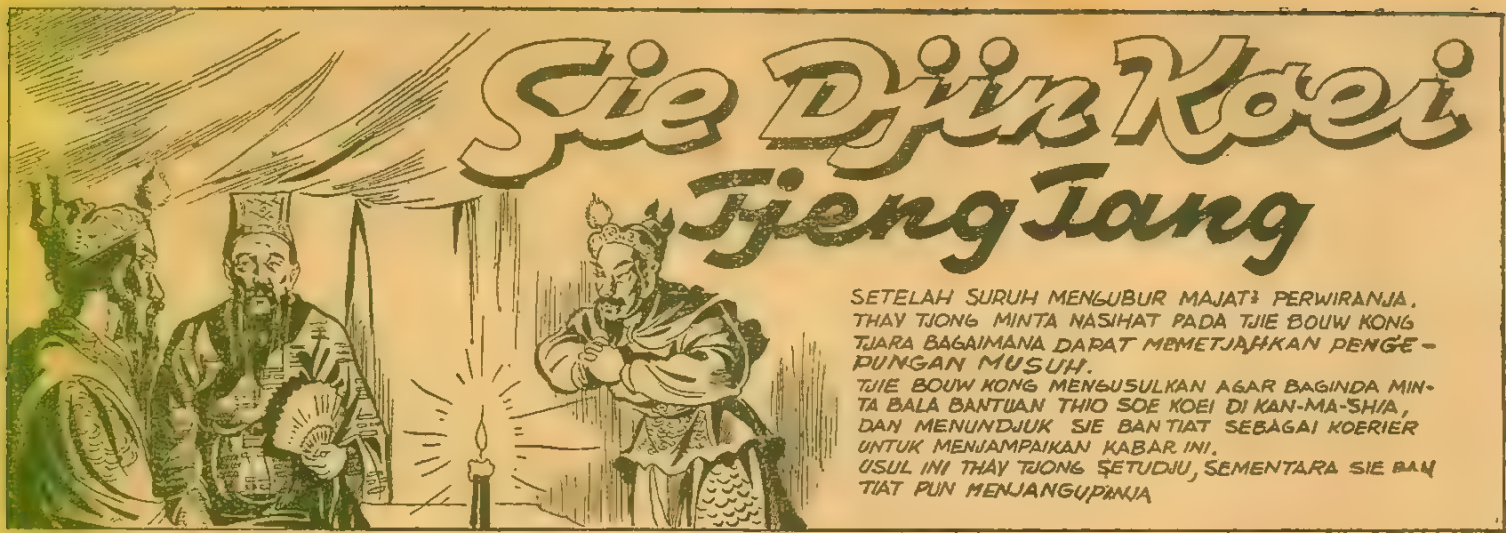 Sie Djin Koei
Tjeng Tang
SETELAH SURUH MENGUBUR MAJAT2 PERWIRANJA.
THAY TJONG MINTA NASIHAT PADA TJIE BOUW KONG
TJARA BAGAIMANA DAPAT MEMETJAHKAN PENGE-
PUNGAN MUSUH.
TJIE BOUW KONG MENGUSULKAN AGAR BAGINDA MIN-
TA BALA BANTUAN THIO SOE KOEI DI KAN-MA-SHIA,
DAN MENUNDJUK SIE BAN TIAT SEBAGAI KOERIER
UNTUK MENJAMPAIKAN KABAR INI.
USUL INI THAY TJONG SETUDJU, SEMENTARA SIE BAN
TIAT PUN MENJANGUPINJA